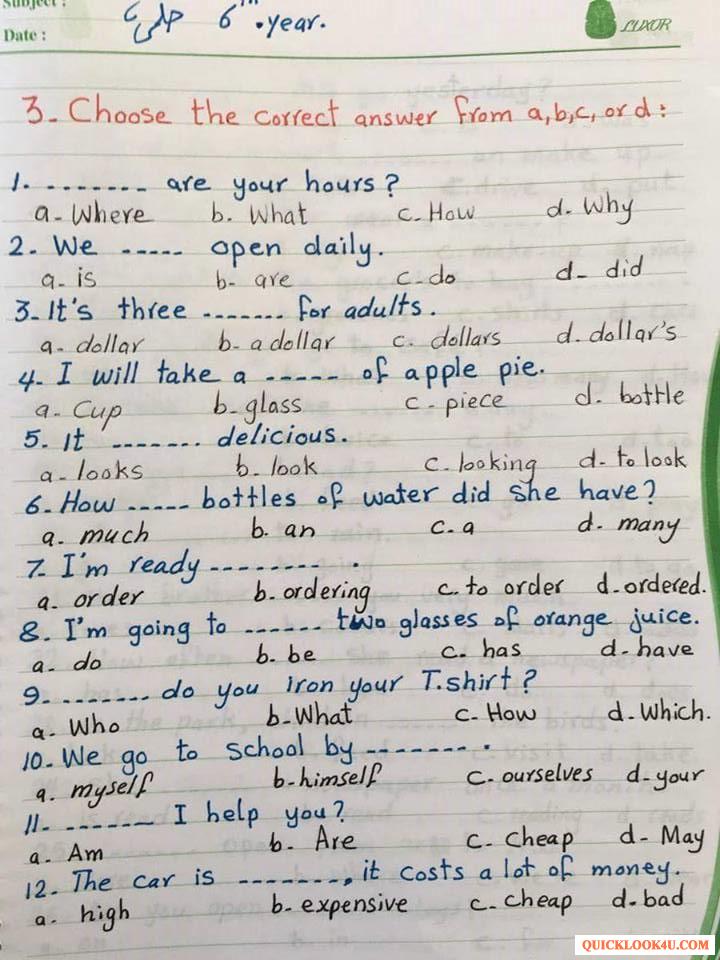 Subject :
6th year.
Date :
LUXOR
3. Choose the correct answer from a,b,c, or d :
1. -------- are your hours?
a- Where b. What c. How d. Why
2. We ----- open daily.
a- is b- are c- do d- did
3. It's three ------- for adults.
a- dollar b- a dollar c. dollars d. dollar's
4. I will take a ----- of apple pie.
a- Cup b- glass c - piece d. bottle
5. It ------- delicious.
a- looks b- look c. looking d- to look
6. How ----- bottles of water did she have?
a. much b. an c. a d- many
7. I'm ready -------- .
a. order b. ordering c. to order d- ordered.
8. I'm going to ------ two glasses of orange juice.
a. do b. be c. has d- have
9. -------- do you iron your T.shirt?
a. Who b- What c- How d- Which.
10. We go to school by ------- .
a. myself b- himself c. ourselves d- your
11. ------- I help you?
a. Am b. Are c. Cheap d- May
12. The car is -------, it costs a lot of money.
a. high b- expensive c. cheap d. bad
QUICKLOOK4U.COM